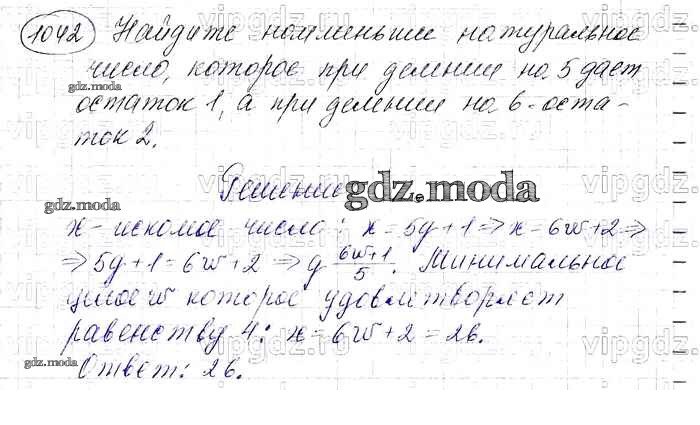 1042 Найдите наименьшее натуральное
число, которое при делении на 5 дает
остаток 1, а при делении на 6 - оста-
ток 2.
Решение
gdz.moda
x - искомое число : x = 5y + 1 ⇒ x = 6w + 2 ⇒
⇒ 5y + 1 = 6w + 2 ⇒ y \frac{6w+1}{5}. Минимальное
целое w которое удовлетворяет
равенству 4: x = 6w + 2 = 26.
Ответ: 26.
gdz.moda
gdz.moda
gdz.moda
vipgdz.ru